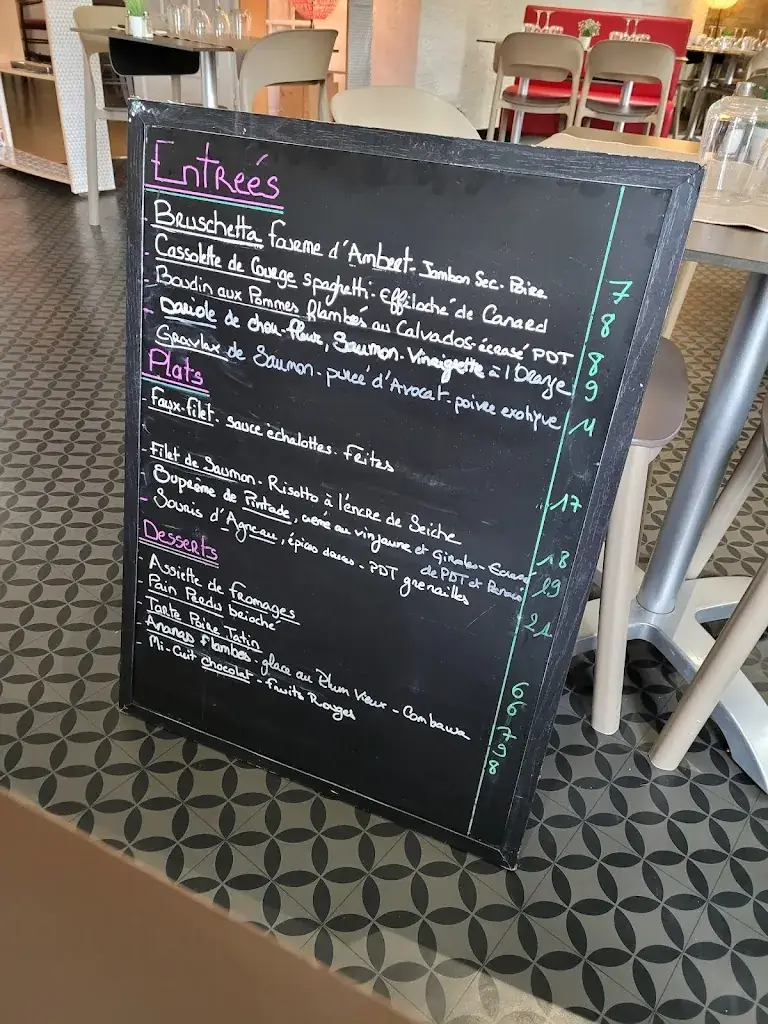 Entrées
- Bruschetta fourme d'Ambert - Jambon Sec - Poire 7
- Cassolette de Courge spaghetti - Effiloché de Canard 8
- Boudin aux Pommes flambés au Calvados - écrasé PDT 8
- Dariole de chou-fleur, Saumon - Vinaigrette à l'Orange 9
- Gravlax de Saumon - purée d'Avocat - poivre exotique 11
Plats
- Faux-filet - sauce echalottes - Frites 17
- Filet de Saumon - Risotto à l'encre de Seiche 18
- Suprême de Pintade, crème au vin jaune et Girolles - Ecrasé de PDT et Panais 19
- Souris d'Agneau, épices douces - PDT grenailles 21
Desserts
- Assiette de fromages 6
- Pain Perdu brioché 6
- Tarte Poire Tatin 7
- Ananas flambés - glace au Rhum Vieux - Combawa 9
- Mi-Cuit Chocolat - Fruits Rouges 8